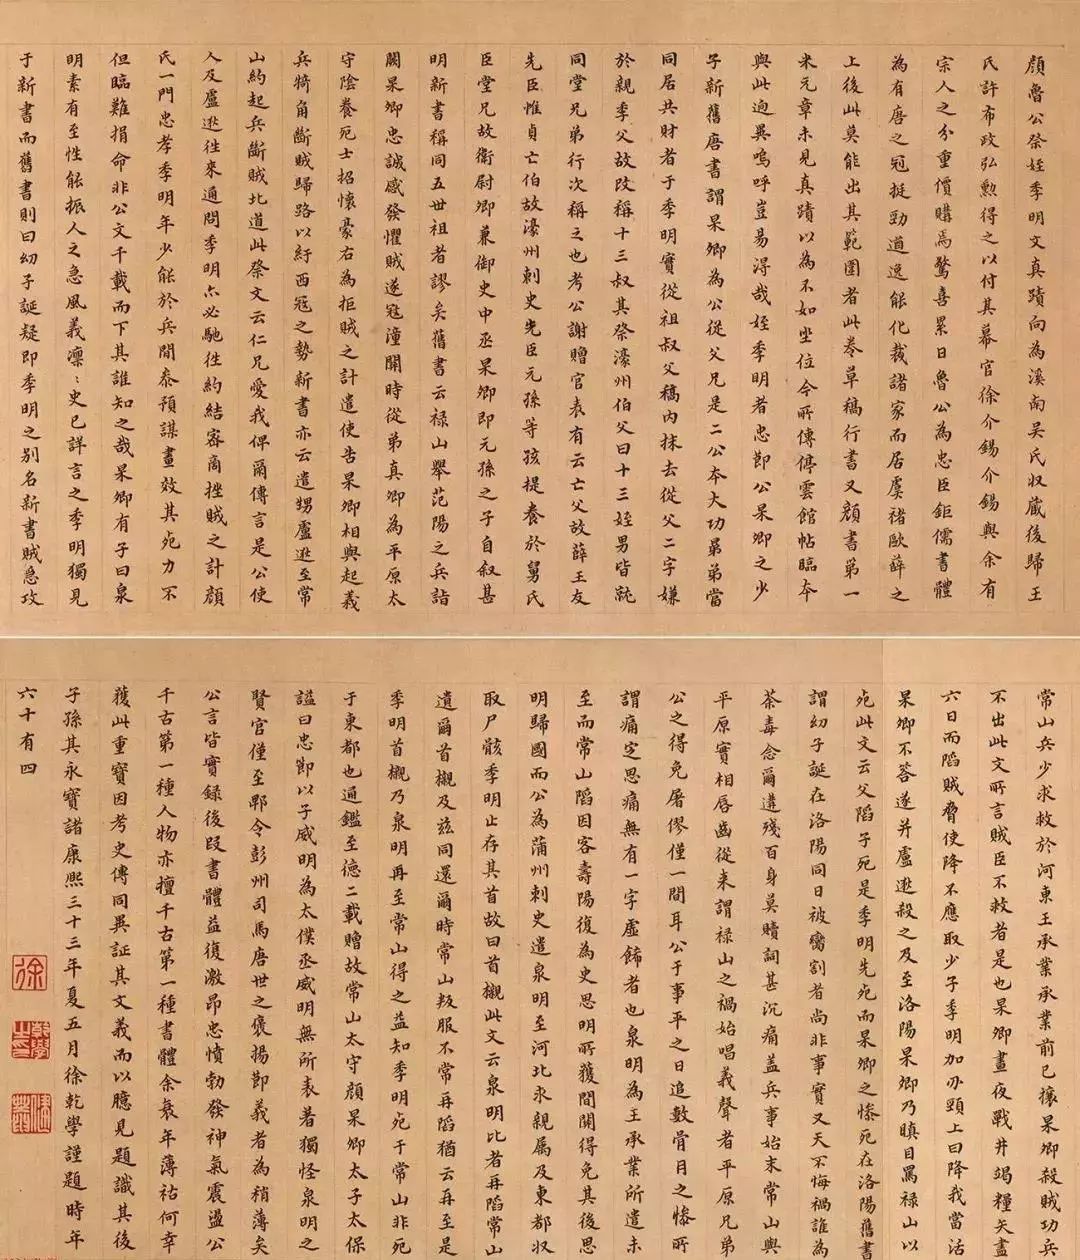 顏魯公祭姪季明文真蹟向為溪南吳氏收藏後歸王
氏許布政弘勲得之以付其幕官徐介錫介錫與余有
宗人之分重價購焉驚喜累日魯公為忠臣鉅儒書體
為有唐之冠挺勁遒逸能化裁諸家而居虞褚歐薛之
上後此莫能出其範圍者此卷草稿行書又顏書第一
米元章未見真蹟以為不如坐位今所傳停雲館帖臨本
與此迥異嗚呼豈易得哉姪季明者忠節公杲卿之少
子新舊唐書謂杲卿為公從父兄是二公本大功弟當
同居共財者于季明實從祖叔父稿內抹去從父二字嫌
於親季父故改稱十三叔其祭濠州伯父曰十三姪男皆就
同堂兄弟行次稱之也考公謝贈官表有云亡父故薛王友
先臣惟貞亡伯故濠州刺史先臣元孫等孩提養於舅氏
臣堂兄故衛尉卿兼御史中丞杲卿即元孫之子自叙甚
明新書稱同五世祖者謬矣舊書云祿山舉范陽之兵詣
闕杲卿忠誠感發懼賊遂寇潼關時從弟真卿為平原太
守陰養死士招懷豪右為拒賊之計遣使告杲卿相與起義
兵犄角斷賊歸路以紓西寇之勢新書亦云遣甥盧逖至常
山約起兵斷賊北道此祭文云仁兄愛我俾爾傳言是公使
人及盧逖往來通問季明亦必馳往約結密商挫賊之計顏
氏一門忠孝季明年少能於兵間參預謀畫效其死力不
但臨難捐命非公文千載而下其誰知之哉杲卿有子曰泉
明素有至性能振人之急風義凜:史已詳言之季明獨見
于新書而舊書則曰幼子誕疑即季明之別名新書賊急攻
常山兵少求救於河東王承業承業前已攘杲卿殺賊功兵
不出此文所言賊臣不救者是也杲卿晝夜戰井竭糧矢盡
六日而陷賊脅使降不應取少子季明加刃頸上曰降我當活
杲卿不答遂并盧逖殺之及至洛陽杲卿乃瞋目罵祿山以
死此文云父陷子死是季明先死而杲卿之慘死在洛陽舊書
謂幼子誕在洛陽同日被臠割者尚非事實又天不悔禍誰為
荼毒念爾遘殘百身莫贖詞甚沉痛盖兵事始末常山與
平原實相唇齒從來謂祿山之禍始唱義聲者平原兄弟
公之得免屠僇僅一間耳公于事平之日追數骨月之慘所
謂痛定思痛無有一字虛飾者也泉明為王承業所遣未
至而常山陷因客壽陽復為史思明所獲間關得免其後思
明歸國而公為蒲州刺史遣泉明至河北求親属及東都收
取尸骸季明止存其首故曰首櫬此文云泉明比者再陷常山
遺爾首櫬及茲同還爾時常山叛服不常再陷猶云再至是
季明首櫬乃泉明再至常山得之益知季明死于常山非死
于東都也通鑑至德二載贈故常山太守顏杲卿太子太保
諡曰忠節以子威明為太僕丞威明無所表著獨怪泉明之
賢官僅至郫令彭州司馬唐世之褒揚節義者為稍薄矣
公言皆實錄後段書體益復激昂忠憤勃發神氣震盪公
千古第一種人物亦擅千古第一種書體余衰年薄祜何幸
獲此重寶因考史傳同異証其文義而以臆見題識其後
子孫其永寶諸康熙三十三年夏五月徐乾學謹題時年
六十有四
徐
乾學之印
健菴